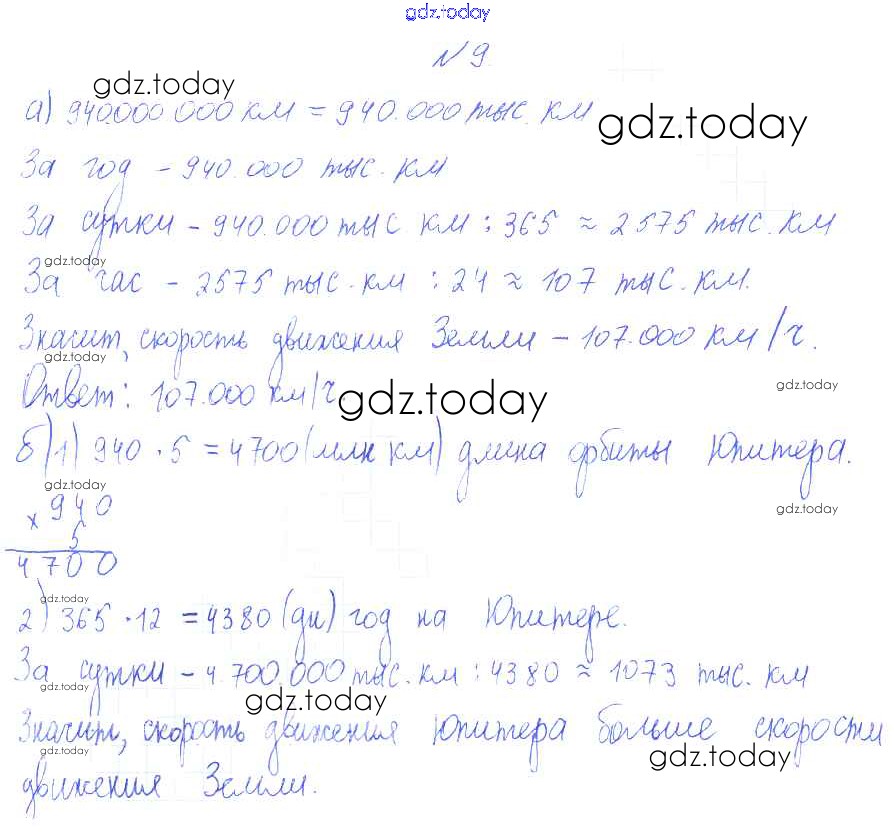 gdz.today
№ 9
gdz.today
а) 940.000 000 км = 940.000 тыс. км
gdz.today
За год - 940.000 тыс. км
За сутки - 940.000 тыс км : 365 ≈ 2575 тыс. км
gdz.today
За час - 2575 тыс. км : 24 ≈ 107 тыс. км.
Значит, скорость движения Земли - 107.000 км/ч.
gdz.today
gdz.today
Ответ: 107.000 км/ч.
gdz.today
б) 1) 940 · 5 = 4700 (млн км) длина орбиты Юпитера.
gdz.today
× 940
gdz.today
5
4700
gdz.today
2) 365 · 12 = 4380 (дн) год на Юпитере.
За сутки - 4.700.000 тыс. км : 4380 ≈ 1073 тыс. км
gdz.today
gdz.today
Значит, скорость движения Юпитера больше скорости
gdz.today
gdz.today
движения Земли.